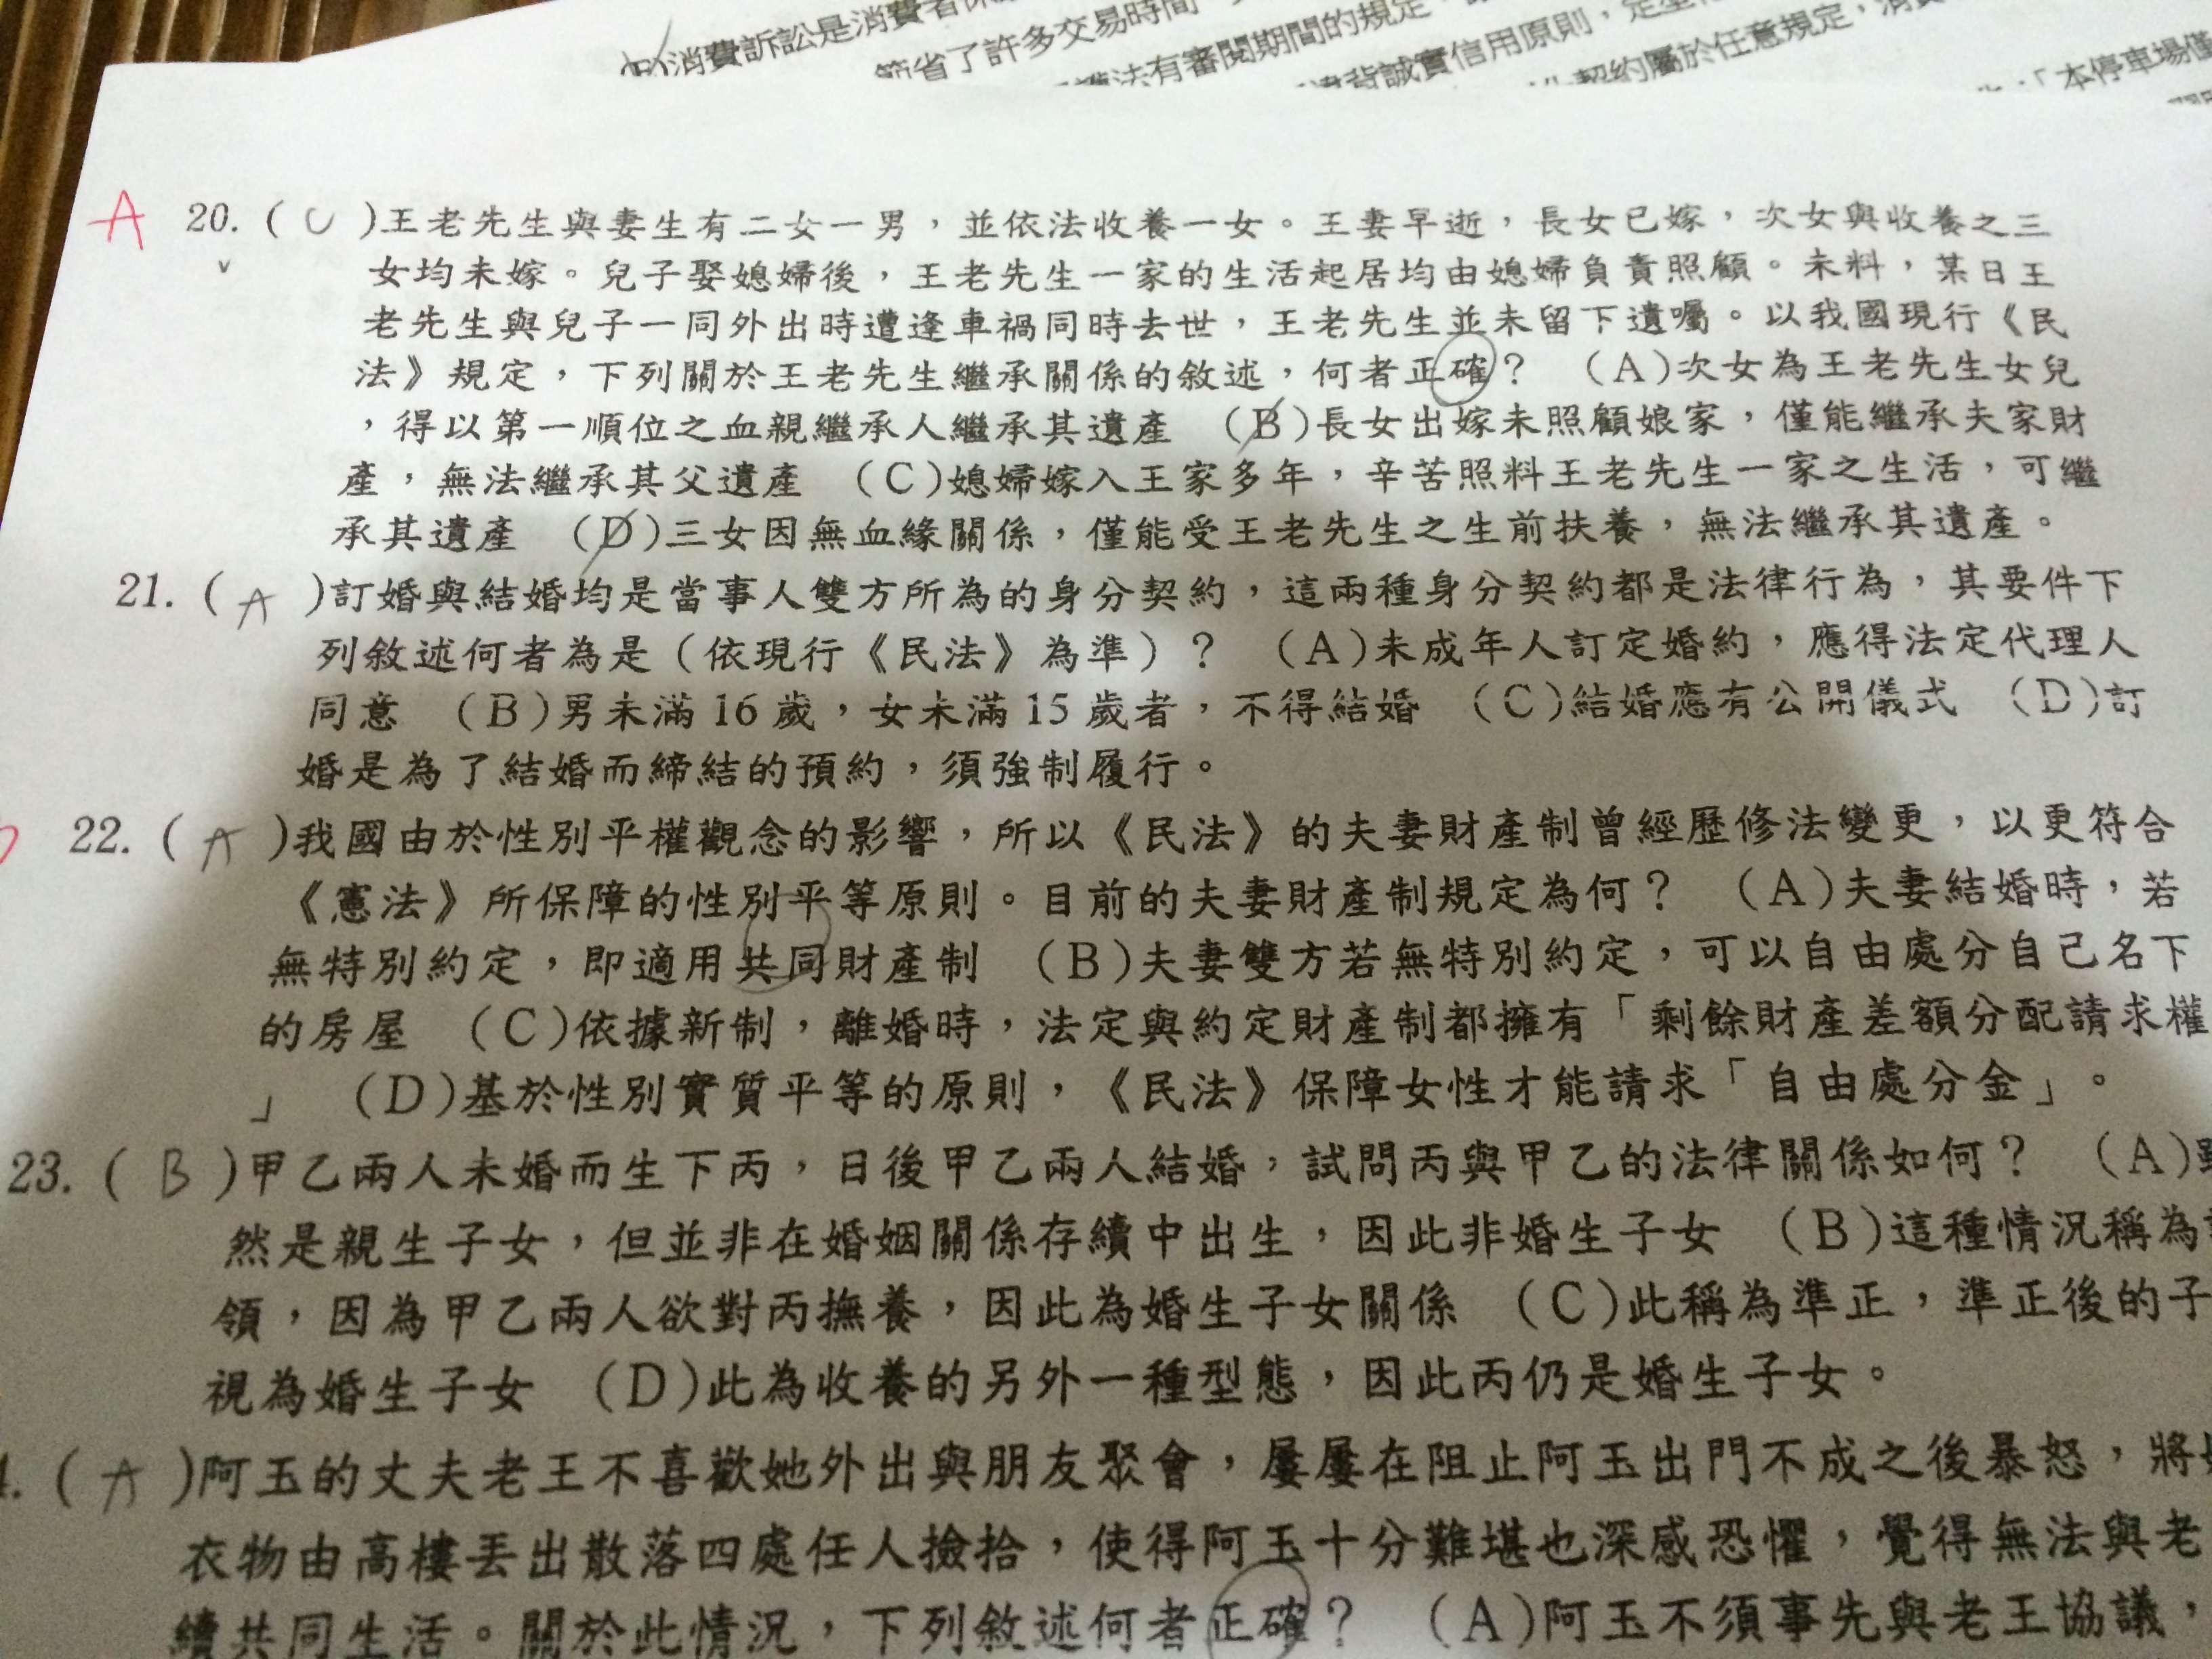 消費訴訟是消費者保
節省了許多交易時間
法有審閱期間的規定
違背誠實信用原則,定型
契約屬於任意規定,消費
「本停車場僅
A 20.( C )王老先生與妻生有二女一男,並依法收養一女。王妻早逝,長女已嫁,次女與收養之三
女均未嫁。兒子娶媳婦後,王老先生一家的生活起居均由媳婦負責照顧。未料,某日王
老先生與兒子一同外出時遭逢車禍同時去世,王老先生並未留下遺囑。以我國現行《民
法》規定,下列關於王老先生繼承關係的敘述,何者正確? (A)次女為王老先生女兒
,得以第一順位之血親繼承人繼承其遺產 (B)長女出嫁未照顧娘家,僅能繼承夫家財
產,無法繼承其父遺產 (C)媳婦嫁入王家多年,辛苦照料王老先生一家之生活,可繼
承其遺產 (D)三女因無血緣關係,僅能受王老先生之生前扶養,無法繼承其遺產。
21.( A )訂婚與結婚均是當事人雙方所為的身分契約,這兩種身分契約都是法律行為,其要件下
列敘述何者為是(依現行《民法》為準)? (A)未成年人訂定婚約,應得法定代理人
同意 (B)男未滿16歲,女未滿15歲者,不得結婚 (C)結婚應有公開儀式 (D)訂
婚是為了結婚而締結的預約,須強制履行。
22.( A )我國由於性別平權觀念的影響,所以《民法》的夫妻財產制曾經歷修法變更,以更符合
《憲法》所保障的性別平等原則。目前的夫妻財產制規定為何? (A)夫妻結婚時,若
無特別約定,即適用共同財產制 (B)夫妻雙方若無特別約定,可以自由處分自己名下
的房屋 (C)依據新制,離婚時,法定與約定財產制都擁有「剩餘財產差額分配請求權
」 (D)基於性別實質平等的原則,《民法》保障女性才能請求「自由處分金」。
23.( B )甲乙兩人未婚而生下丙,日後甲乙兩人結婚,試問丙與甲乙的法律關係如何? (A)
然是親生子女,但並非在婚姻關係存續中出生,因此非婚生子女 (B)這種情況稱為
領,因為甲乙兩人欲對丙撫養,因此為婚生子女關係 (C)此稱為準正,準正後的子
視為婚生子女 (D)此為收養的另外一種型態,因此丙仍是婚生子女。
( A )阿玉的丈夫老王不喜歡她外出與朋友聚會,屢屢在阻止阿玉出門不成之後暴怒,將
衣物由高樓丟出散落四處任人撿拾,使得阿玉十分難堪也深感恐懼,覺得無法與老
續共同生活。關於此情況,下列敘述何者正確? (A)阿玉不須事先與老王協議,